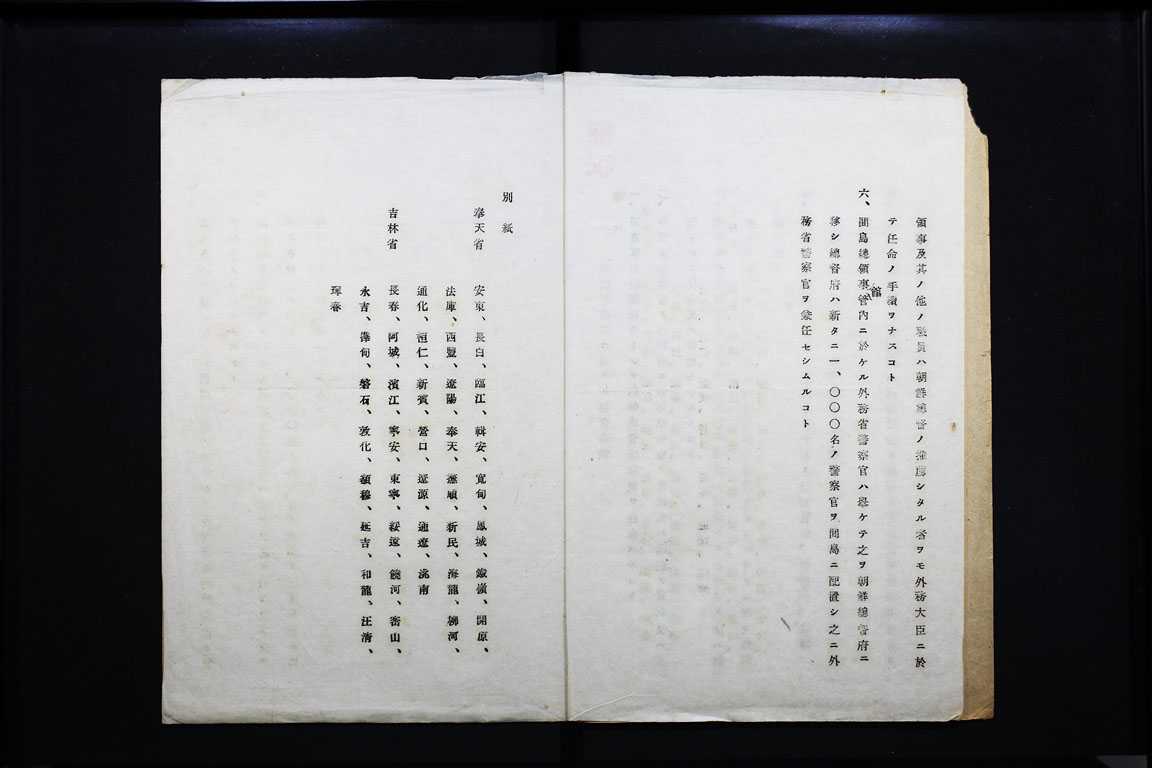 領事及其ノ他ノ職員ハ朝鮮總督ノ推薦シタル者ヲモ外務大臣ニ於
テ任命ノ手續ヲナスコト
六、間島總領事館管內ニ於ケル外務省警察官ハ擧ケテ之ヲ朝鮮總督府ニ
移シ總督府ハ新タニ一、〇〇〇名ノ警察官ヲ間島ニ配置シ之ニ外
務省警察官ヲ兼任セシムルコト
別紙
奉天省 安東、長白、臨江、輯安、寬甸、鳳城、鐵嶺、開原、
法庫、西豐、遼陽、奉天、撫順、新民、海龍、柳河、
通化、桓仁、新賓、營口、遼源、通遼、洮南
吉林省 長春、阿城、濱江、寧安、東寧、綏遠、饒河、密山、
永吉、樺甸、磐石、敦化、額穆、延吉、和龍、汪淸、
琿春